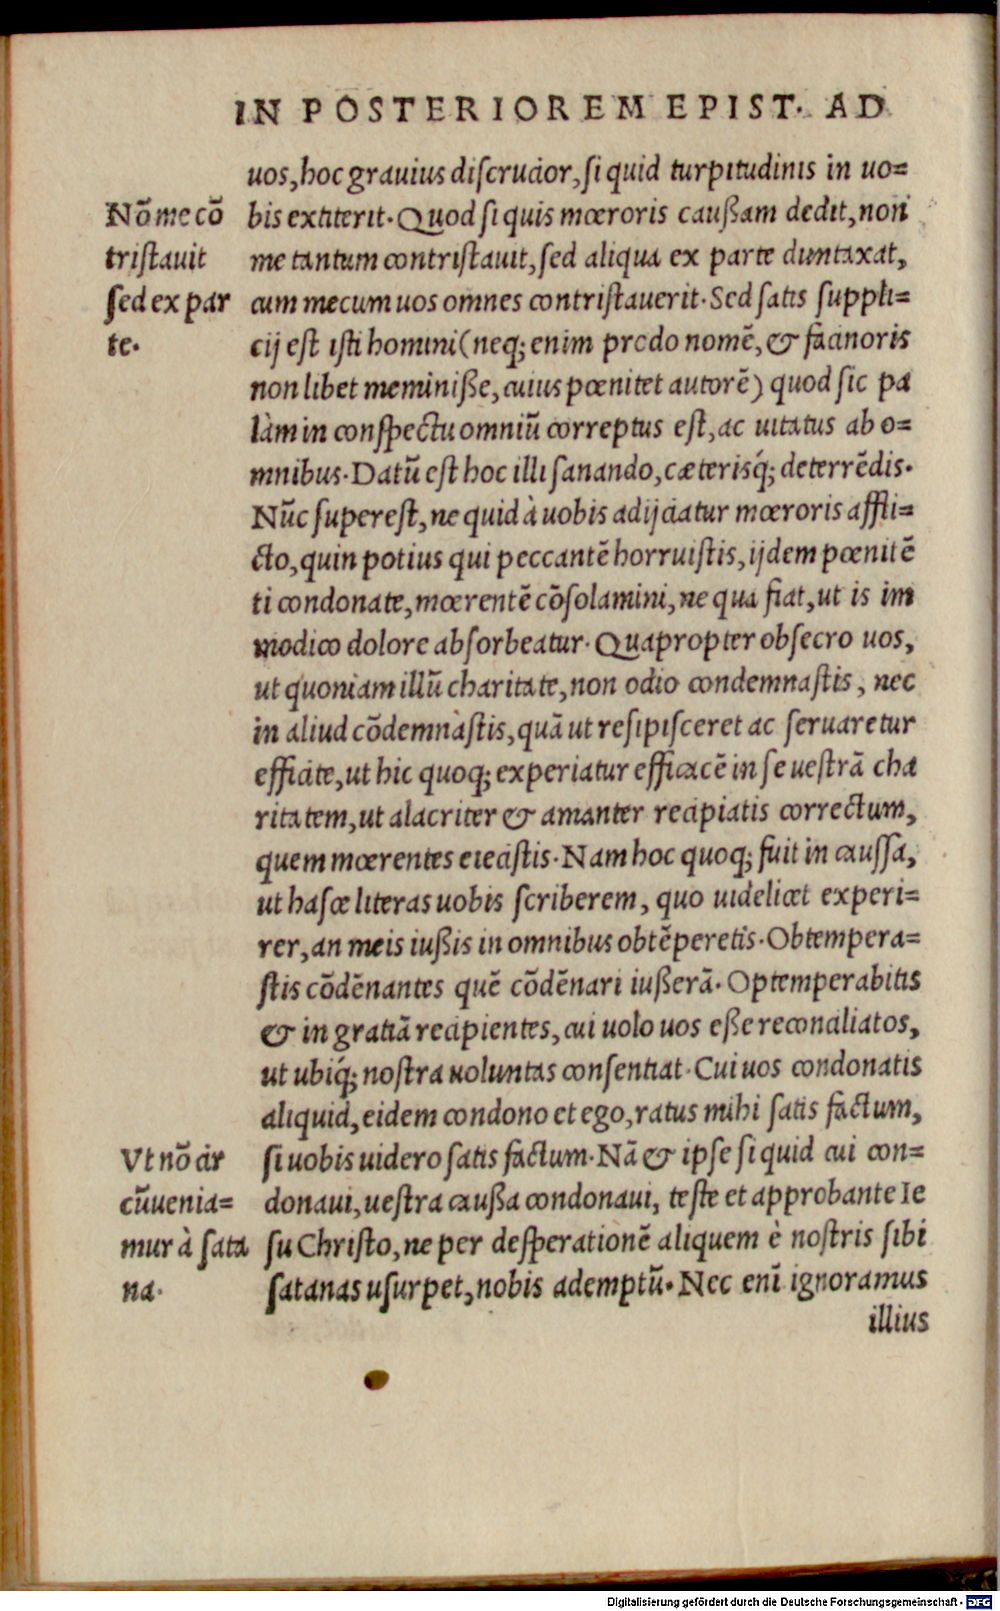 IN POSTERIOREM EPIST. AD
uos, hoc grauius discrucior, si quid turpitudinis in uo=
bis extiterit. Quod si quis mœroris caußam dedit, non
me tantum contristauit, sed aliqua ex parte duntaxat,
cum mecum uos omnes contristauerit. Sed satis suppli=
cij est isti homini (neq; enim prodo nomē, & facinoris
non libet meminiße, cuius pœnitet autorē) quod sic pa
làm in conspectu omniū correptus est, ac uitatus ab o=
mnibus. Datū est hoc illi sanando, cæterisq́; deterrēdis.
Nūc superest, ne quid à uobis adijciatur mœroris affli=
cto, quin potius qui peccantē horruistis, ijdem pœnitē
ti condonate, mœrentē cōsolamini, ne qua fiat, ut is im
modico dolore absorbeatur. Quapropter obsecro uos,
ut quoniam illū charitate, non odio condemnastis, nec
in aliud cōdemnàstis, quā ut resipisceret ac seruaretur
efficite, ut hic quoq; experiatur efficacē in se uestrā cha
ritatem, ut alacriter & amanter recipiatis correctum,
quem mœrentes eiecistis. Nam hoc quoq; fuit in caussa,
ut hasce literas uobis scriberem, quo uidelicet experi=
rer, an meis iußis in omnibus obtēperetis. Obtempera=
stis cōdēnantes quē cōdēnari iußerā. Optemperabitis
& in gratiā recipientes, cui uolo uos eße reconciliatos,
ut ubiq́; nostra uoluntas consentiat. Cui uos condonatis
aliquid, eidem condono et ego, ratus mihi satis factum,
si uobis uidero satis factum. Nā & ipse si quid cui con=
donaui, uestra caußa condonaui, teste et approbante Ie
su Christo, ne per desperationē aliquem è nostris sibi
satanas usurpet, nobis ademptū. Nec enī ignoramus
illius
Nō me cō
tristauit
sed ex par
te.
Vt nō cir
cūuenia=
mur à sata
na.
Digitalisierung gefördert durch die Deutsche Forschungsgemeinschaft - DFG